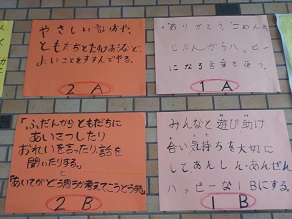 やさしい言い方や、
ともだちとたすけあうなど、
よいことをすすんでやる。
2A
ありがとう ごめんを
じぶんからハッピー
になる言葉を使う。
1A
「ふだんからともだちに
あいさつしたり
おれいを言ったり、話を
聞いたりする。」
と
「あいてがどう思うか考えてこうどう
2B
みんなと遊び助け
合い気持ちを大切に
してあんしん・あんぜん
ハッピーな1Bにする。
1B